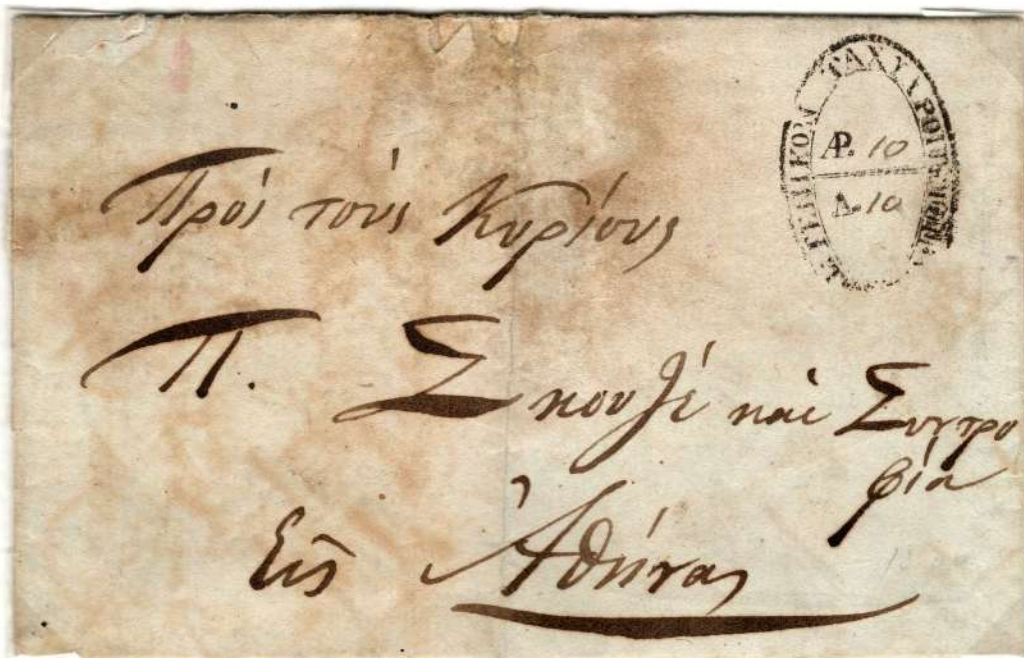 ΤΑΧΥΔΡΟΜΙΚΟΝ
ΑΡ. 10
Δ. 10
Πρὸς τοὺς Κυρίους
Π. Σκουζέ καὶ Συντρο
φία
Εἰς Ἀθήνας